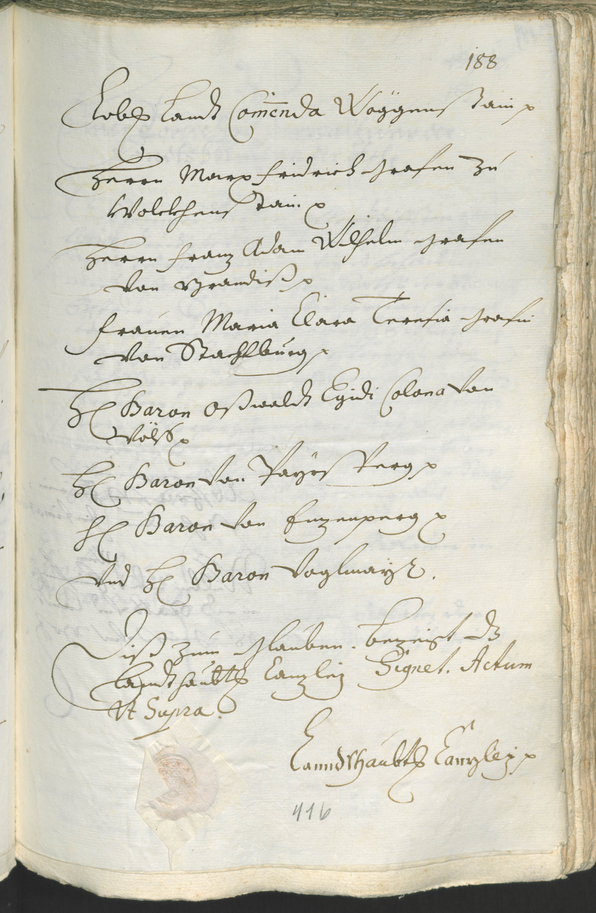 188
Lobl. Landt Comenda Wöggenstain
Herrn Marx Fridrich Grafen Zu
Wolckhenstain
Herrn Franz Adam Wilhelm Grafen
von Brandiß
Frauen Maria Clara Teresia Grafin
von Stachlburg
H: Baron Oßwaldt Egidi Colona von
Völß
H: Baron von Payrsperg
H: Baron von Enzenperg
Und H: Baron Voglmayr.
Diß zum Glauben. bezeigt dz
Landtshaubtl. Canzleÿ Signet. Actum
Ut Supra.
Lanndtshaubtl. Canzleÿ
416